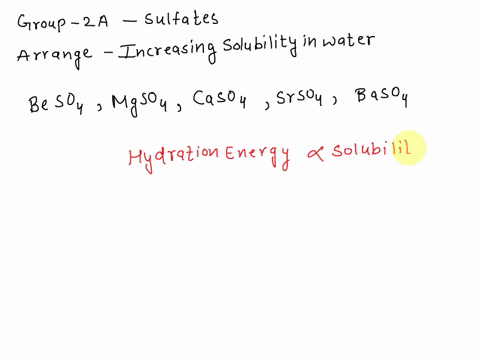 Group-2A - Sulfates
Arrange - Increasing Solubility in water
BeSO4, MgSO4, CaSO4, SrSO4, BaSO4
Hydration Energy ∝ Solubilil